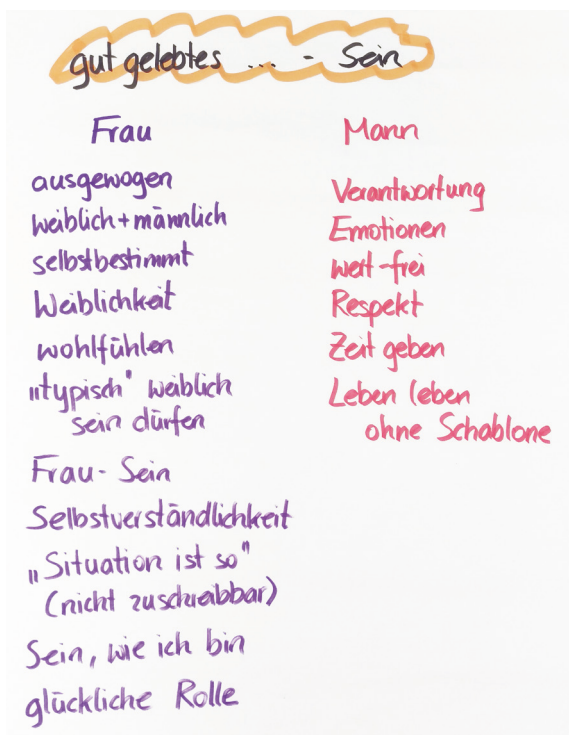 gut gelebtes ... - Sein
Frau
ausgewogen
weiblich + männlich
selbstbestimmt
Weiblichkeit
wohlfühlen
„typisch" weiblich
sein dürfen
Frau - Sein
Selbstverständlichkeit
„Situation ist so"
(nicht zuschreibbar)
Sein, wie ich bin
glückliche Rolle
Mann
Verantwortung
Emotionen
wert-frei
Respekt
Zeit geben
Leben leben
ohne Schablone